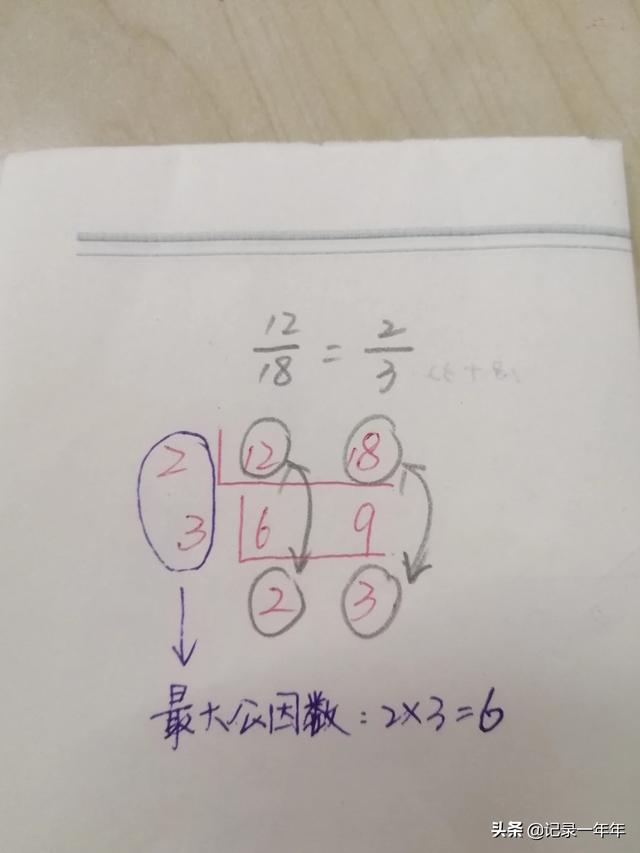 12/18 = 2/3
2 12 18
3 6 9
2 3
最大公因数：2×3=6
头条 @记录一年年